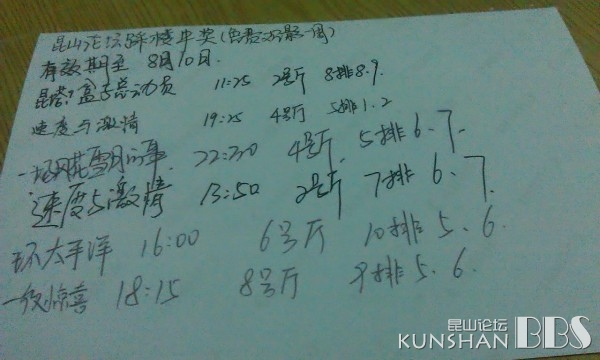 昆山论坛踩楼中奖(免费观影一周)
有效期至 8月10日.
昆塔:盒子总动员 11:25 2号厅 8排8.9.
速度与激情 19:25 4号厅 5排1.2
一场风花雪月的事 22:30 4号厅. 5排6.7.
速度与激情 13:50 2号厅 7排6.7.
环太平洋 16:00 6号厅 10排5.6.
一夜惊喜 18:15 8号厅 9排5.6.
昆山论坛
KUNSHAN BBS